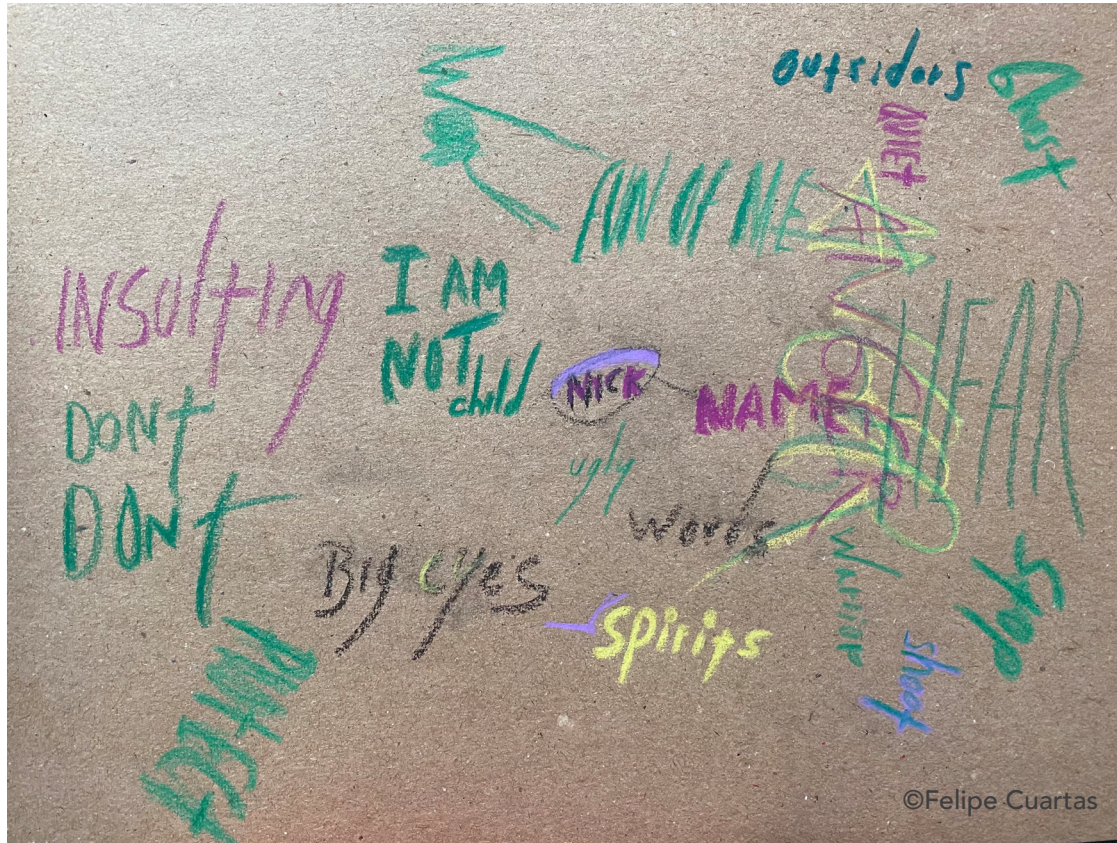 outsiders
Ghost
QUIET
INSULTING
I AM
NOT
child
NICK
NAME
FEAR
DONT
DONT
ugly
Words
Big eyes
Spirits
Warrior
Stop
shoot
PROTECT
©Felipe Cuartas